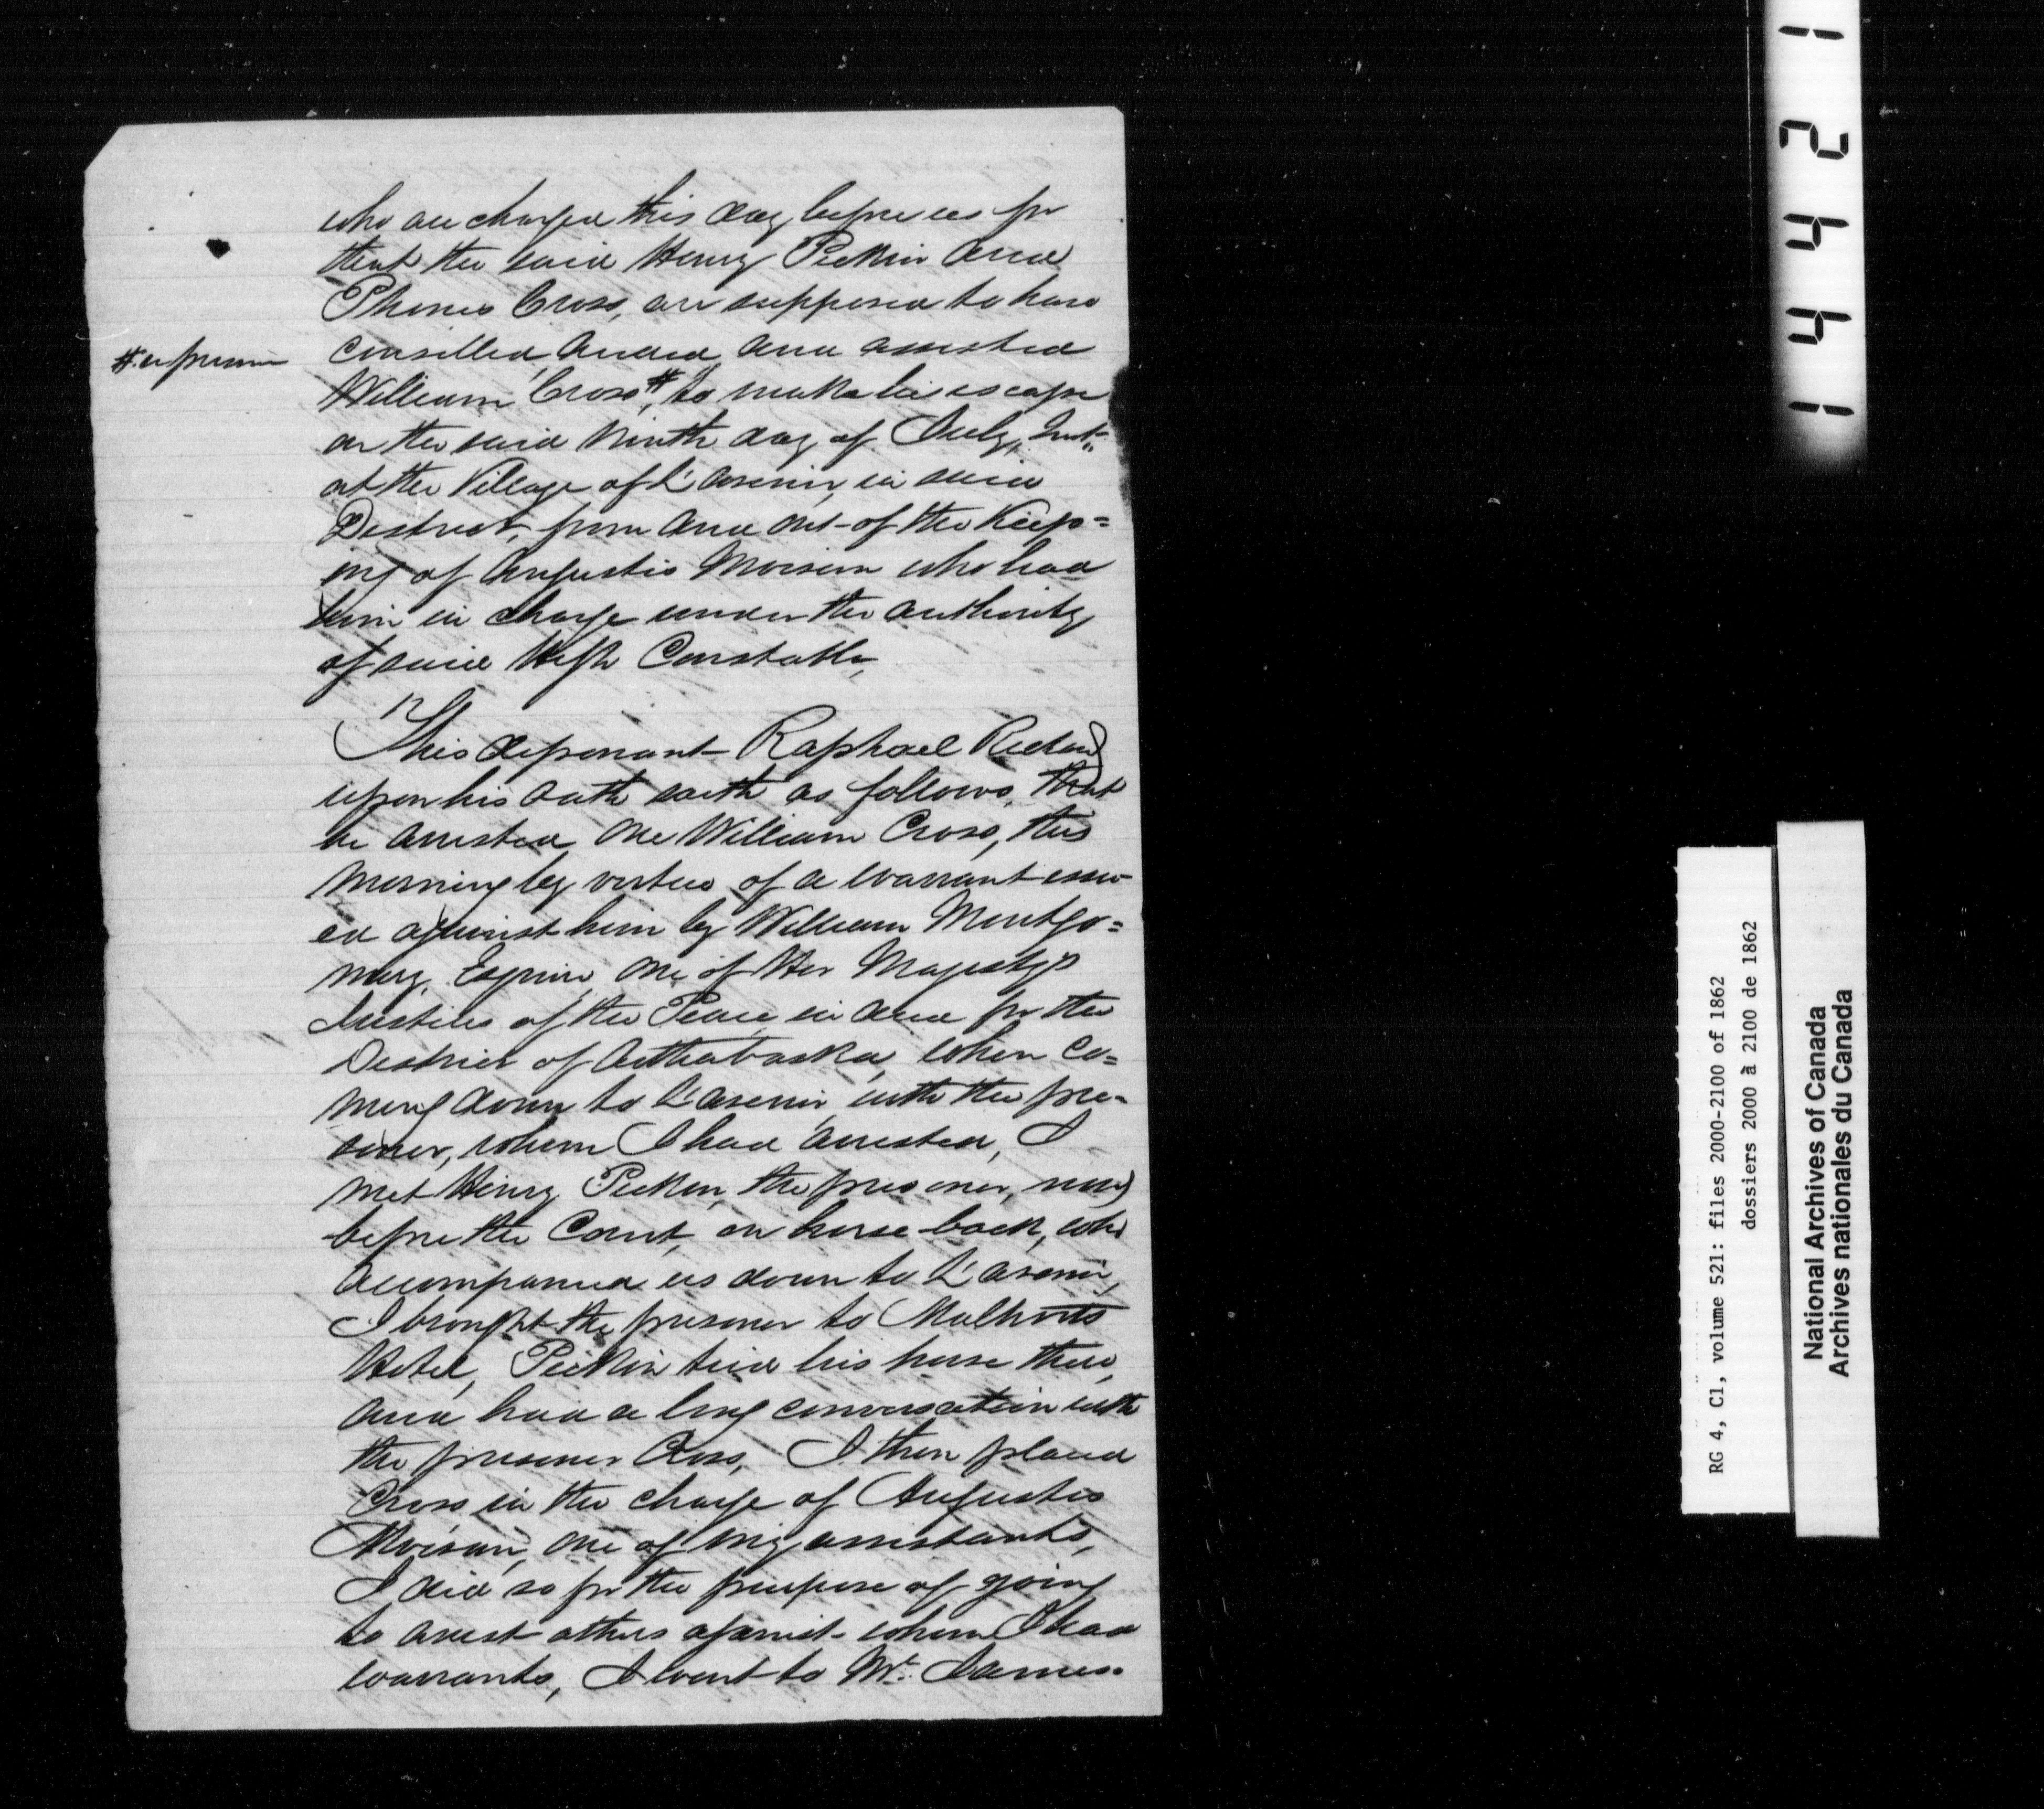 who are charged this day before us for
that the said Henry Peekin and
Phones Cross, are supposed to have
# a prisoner
Consilled, Aided, and assisted
William Cross #, to make his escape
on the said Ninth day of July, Inst.
at the Village of L'avenir, in said
District, from and out of the Keep=
ing of Augustis Moisan who had
him in charge under the authority
of said High Constable,
This deponant Raphael Richard
upon his oath saith as follows, that
he arrested one William Cross, this
Morning by virtue of a warrant issu-
ed against him by William Montgo=
mery, Esquire, one of Her Majestys
Justices of the Peace, in and for the
District of Arthabaska, when co=
ming down to L'avenir with the pri=
soner, whom I had arrested, I
met Henry Peekin, the prisoner, now
before the Court, on horse back, who
accompanied us down to L'avenir,
I brought the prisoner to
Hotel, Peekin tied his horse there,
and had a long conversation with
the prisoner Cross, I then placed
Cross in the charge of Augustis
Moisan, one of my assistants,
I did so for the purpose of going
to arrest others against whom I had
warrants, I went to Mr. James
1 4 4 2 1
RG 4, C1, volume 521: files 2000-2100 of 1862
dossiers 2000 à 2100 de 1862
National Archives of Canada
Archives nationales du Canada